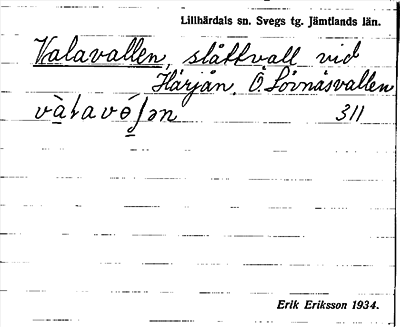 Lillhärdals sn. Svegs tg. Jämtlands län.
Valavallen, slåttvall vid
Härjån. Ö. Lövnäsvallen
311
Erik Eriksson 1934.